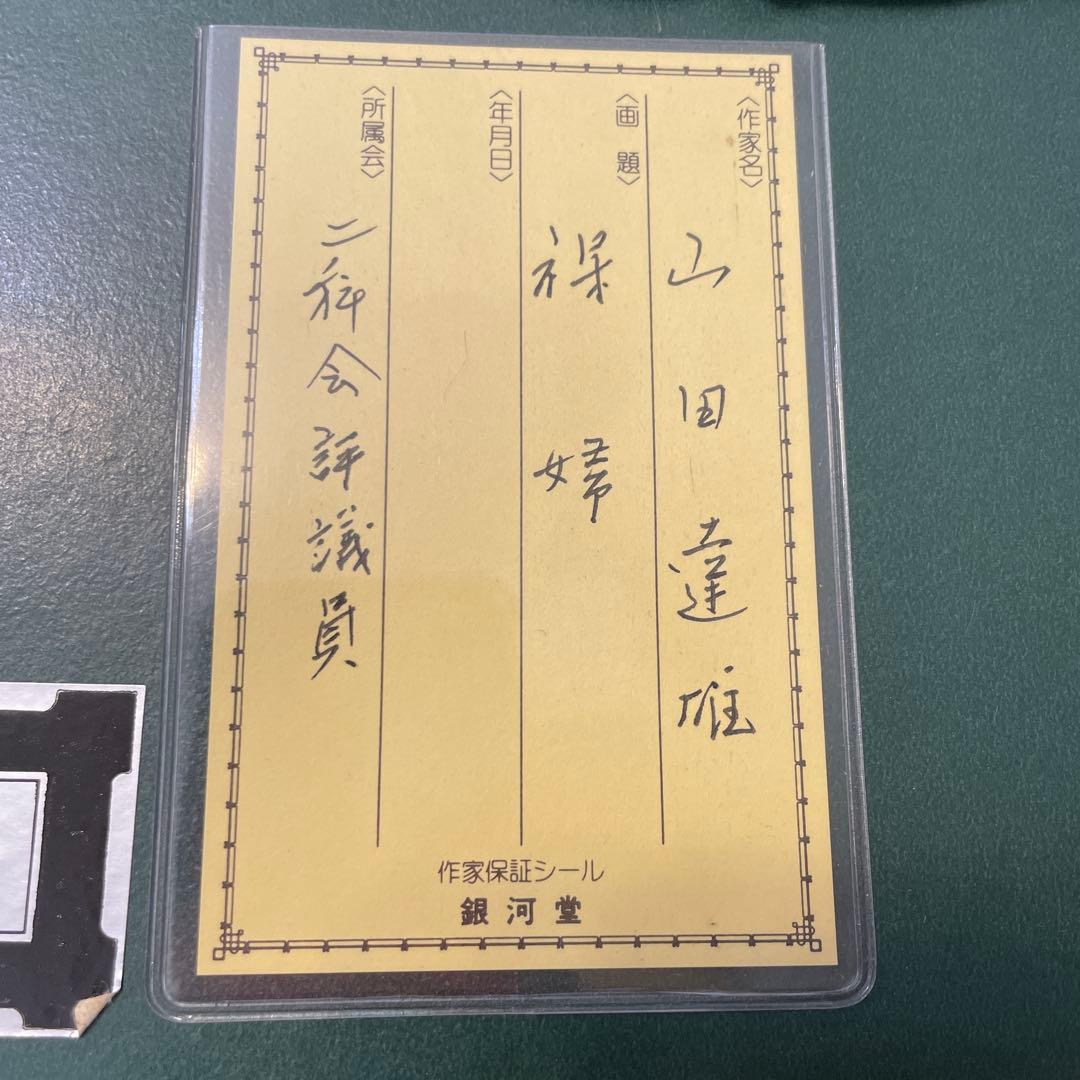 〈作家名〉 山田達雄
〈画 題〉 裸婦
〈年月日〉
〈所属会〉 二科会評議員
作家保証シール
銀河堂